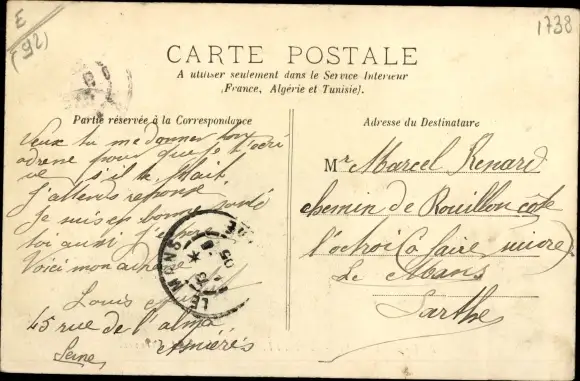 E
(92)
1738
CARTE POSTALE
A utiliser seulement dans le Service Interieur
(France, Algérie et Tunisie).
Partie réservée à la Correspondance
Veux tu me donner ton
adresse pour que je t'écri
ve s'il te plait
j'attends réponse
Je suis en bonne santé
toi aussi j'
Voici mon adresse
Louis
45 rue de l'alma
Asnières
Seine
LE MANS
05
Adresse du Destinataire
Mr Marcel Renard
chemin de Rouillon côte
l'octroi (a faire suivre)
Le Mans
Sarthe